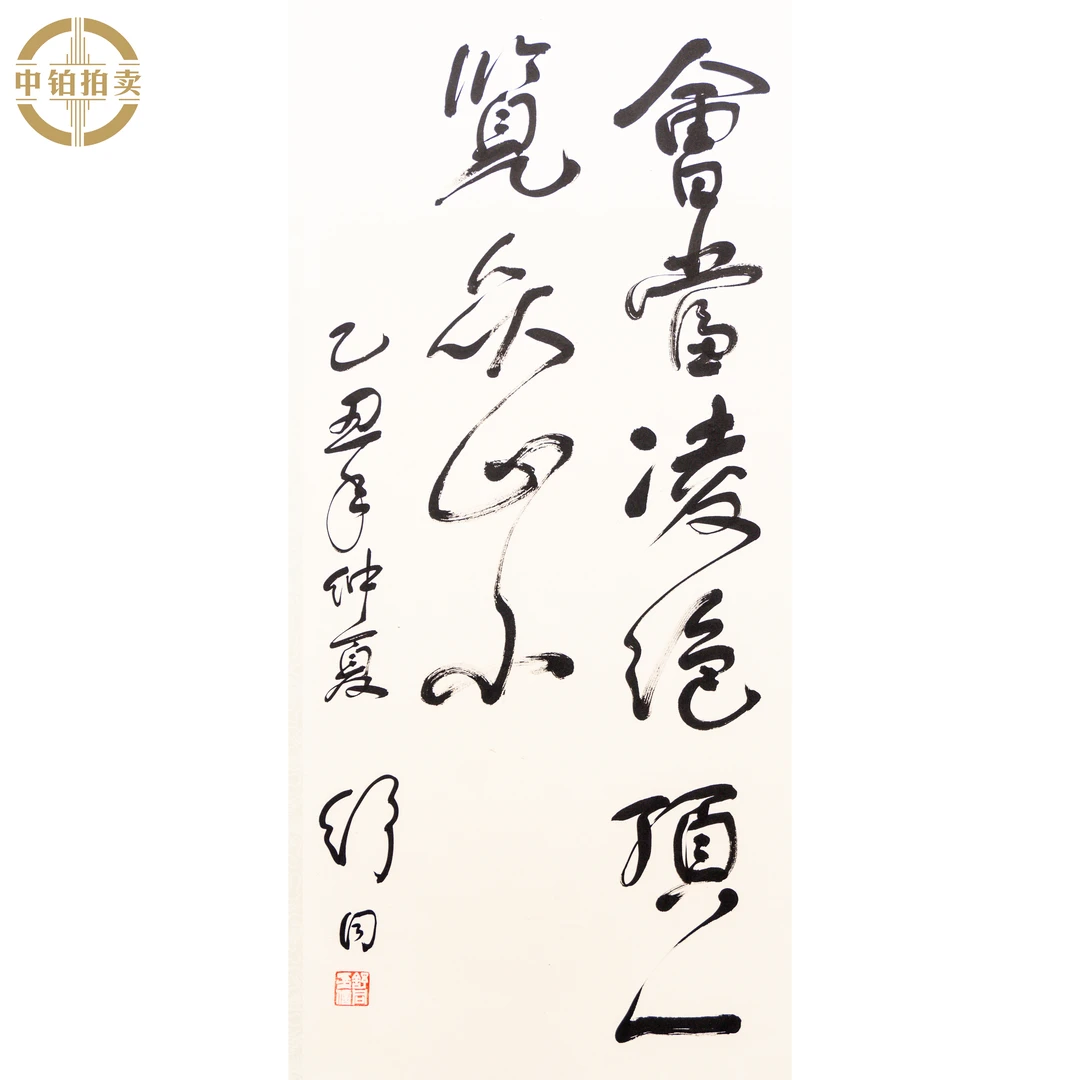 中铂拍卖
會當凌絶頂一
覽众山小
乙丑年仲夏
舒同